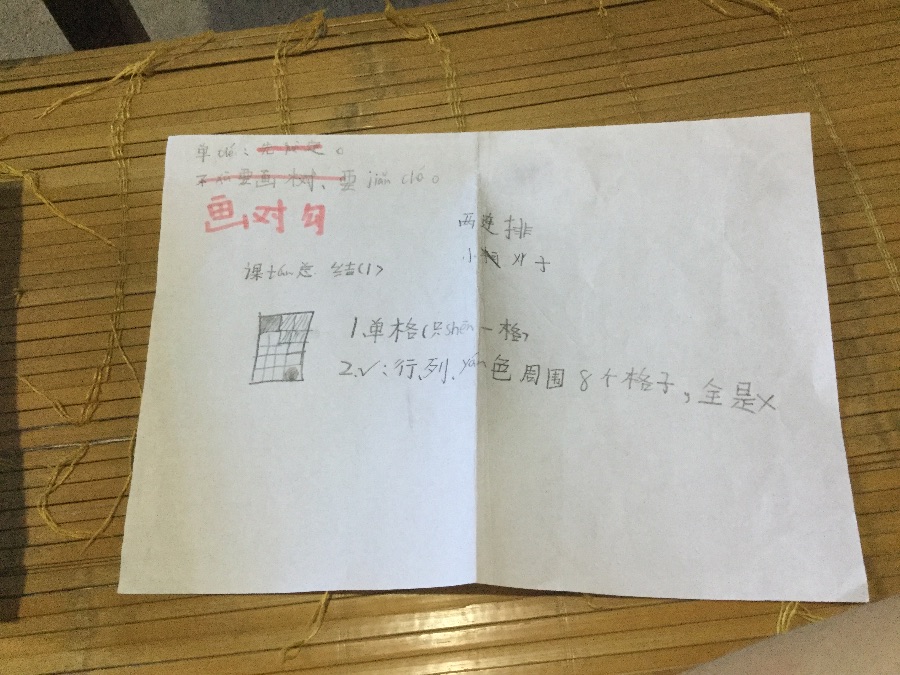 单
不 要画树、要jiǎn chá。
画对勾
两连排
小 对子
课táng总结(1)
1.单格(只shèng一格)
2.√:行、列、yán色周围8个格子,全是×